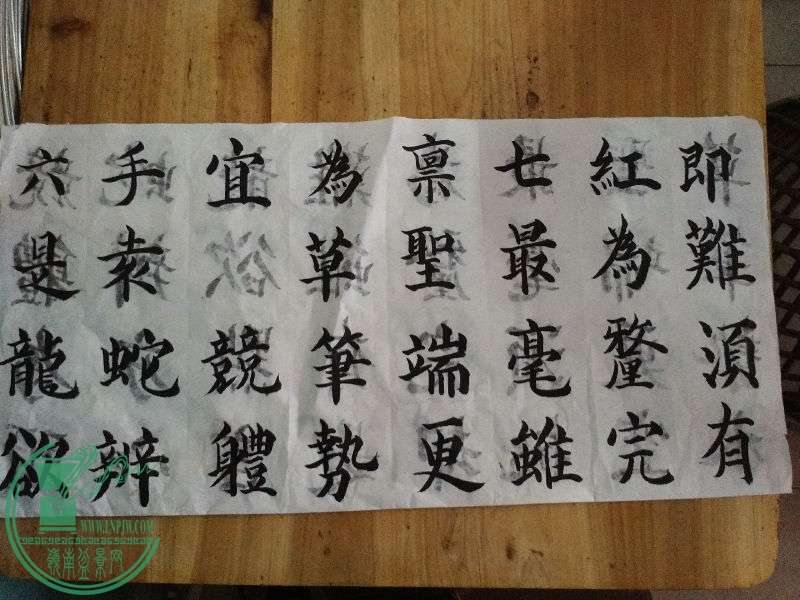 即難須有
紅為釐完
七最毫雖
禀聖端更
為草筆勢
宜競體
手袁蛇辨
六是龍欲
WWW.LNPJW.COM
嶺南盆景网